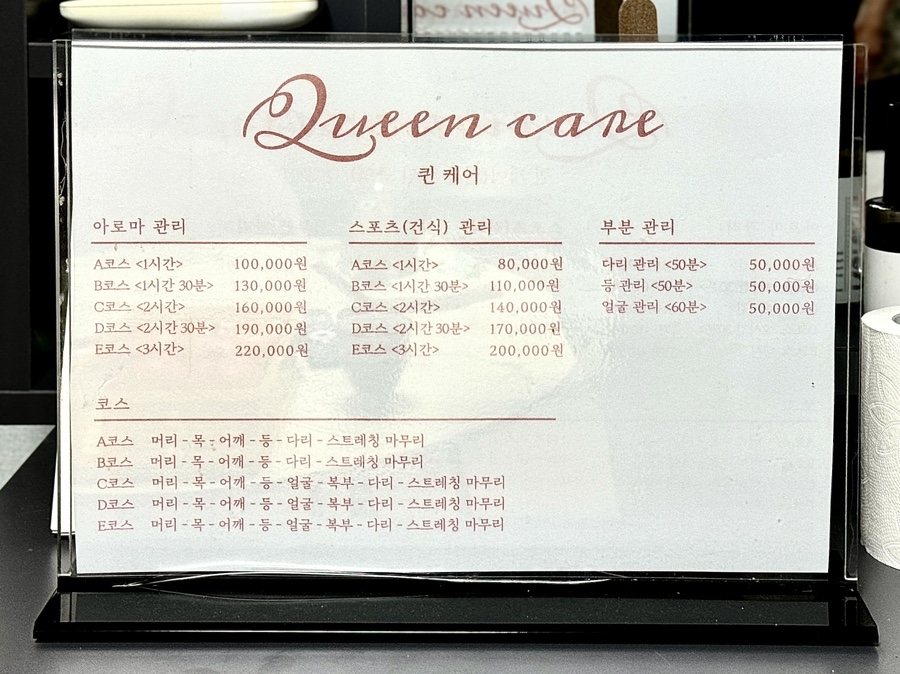 Queen care
퀸 케어
아로마 관리
A코스 <1시간> 100,000원
B코스 <1시간 30분> 130,000원
C코스 <2시간> 160,000원
D코스 <2시간 30분> 190,000원
E코스 <3시간> 220,000원
스포츠(건식) 관리
A코스 <1시간> 80,000원
B코스 <1시간 30분> 110,000원
C코스 <2시간> 140,000원
D코스 <2시간 30분> 170,000원
E코스 <3시간> 200,000원
부분 관리
다리 관리 <50분> 50,000원
등 관리 <50분> 50,000원
얼굴 관리 <60분> 50,000원
코스
A코스 머리 - 목 - 어깨 - 등 - 다리 - 스트레칭 마무리
B코스 머리 - 목 - 어깨 - 등 - 다리 - 스트레칭 마무리
C코스 머리 - 목 - 어깨 - 등 - 얼굴 - 복부 - 다리 - 스트레칭 마무리
D코스 머리 - 목 - 어깨 - 등 - 얼굴 - 복부 - 다리 - 스트레칭 마무리
E코스 머리 - 목 - 어깨 - 등 - 얼굴 - 복부 - 다리 - 스트레칭 마무리